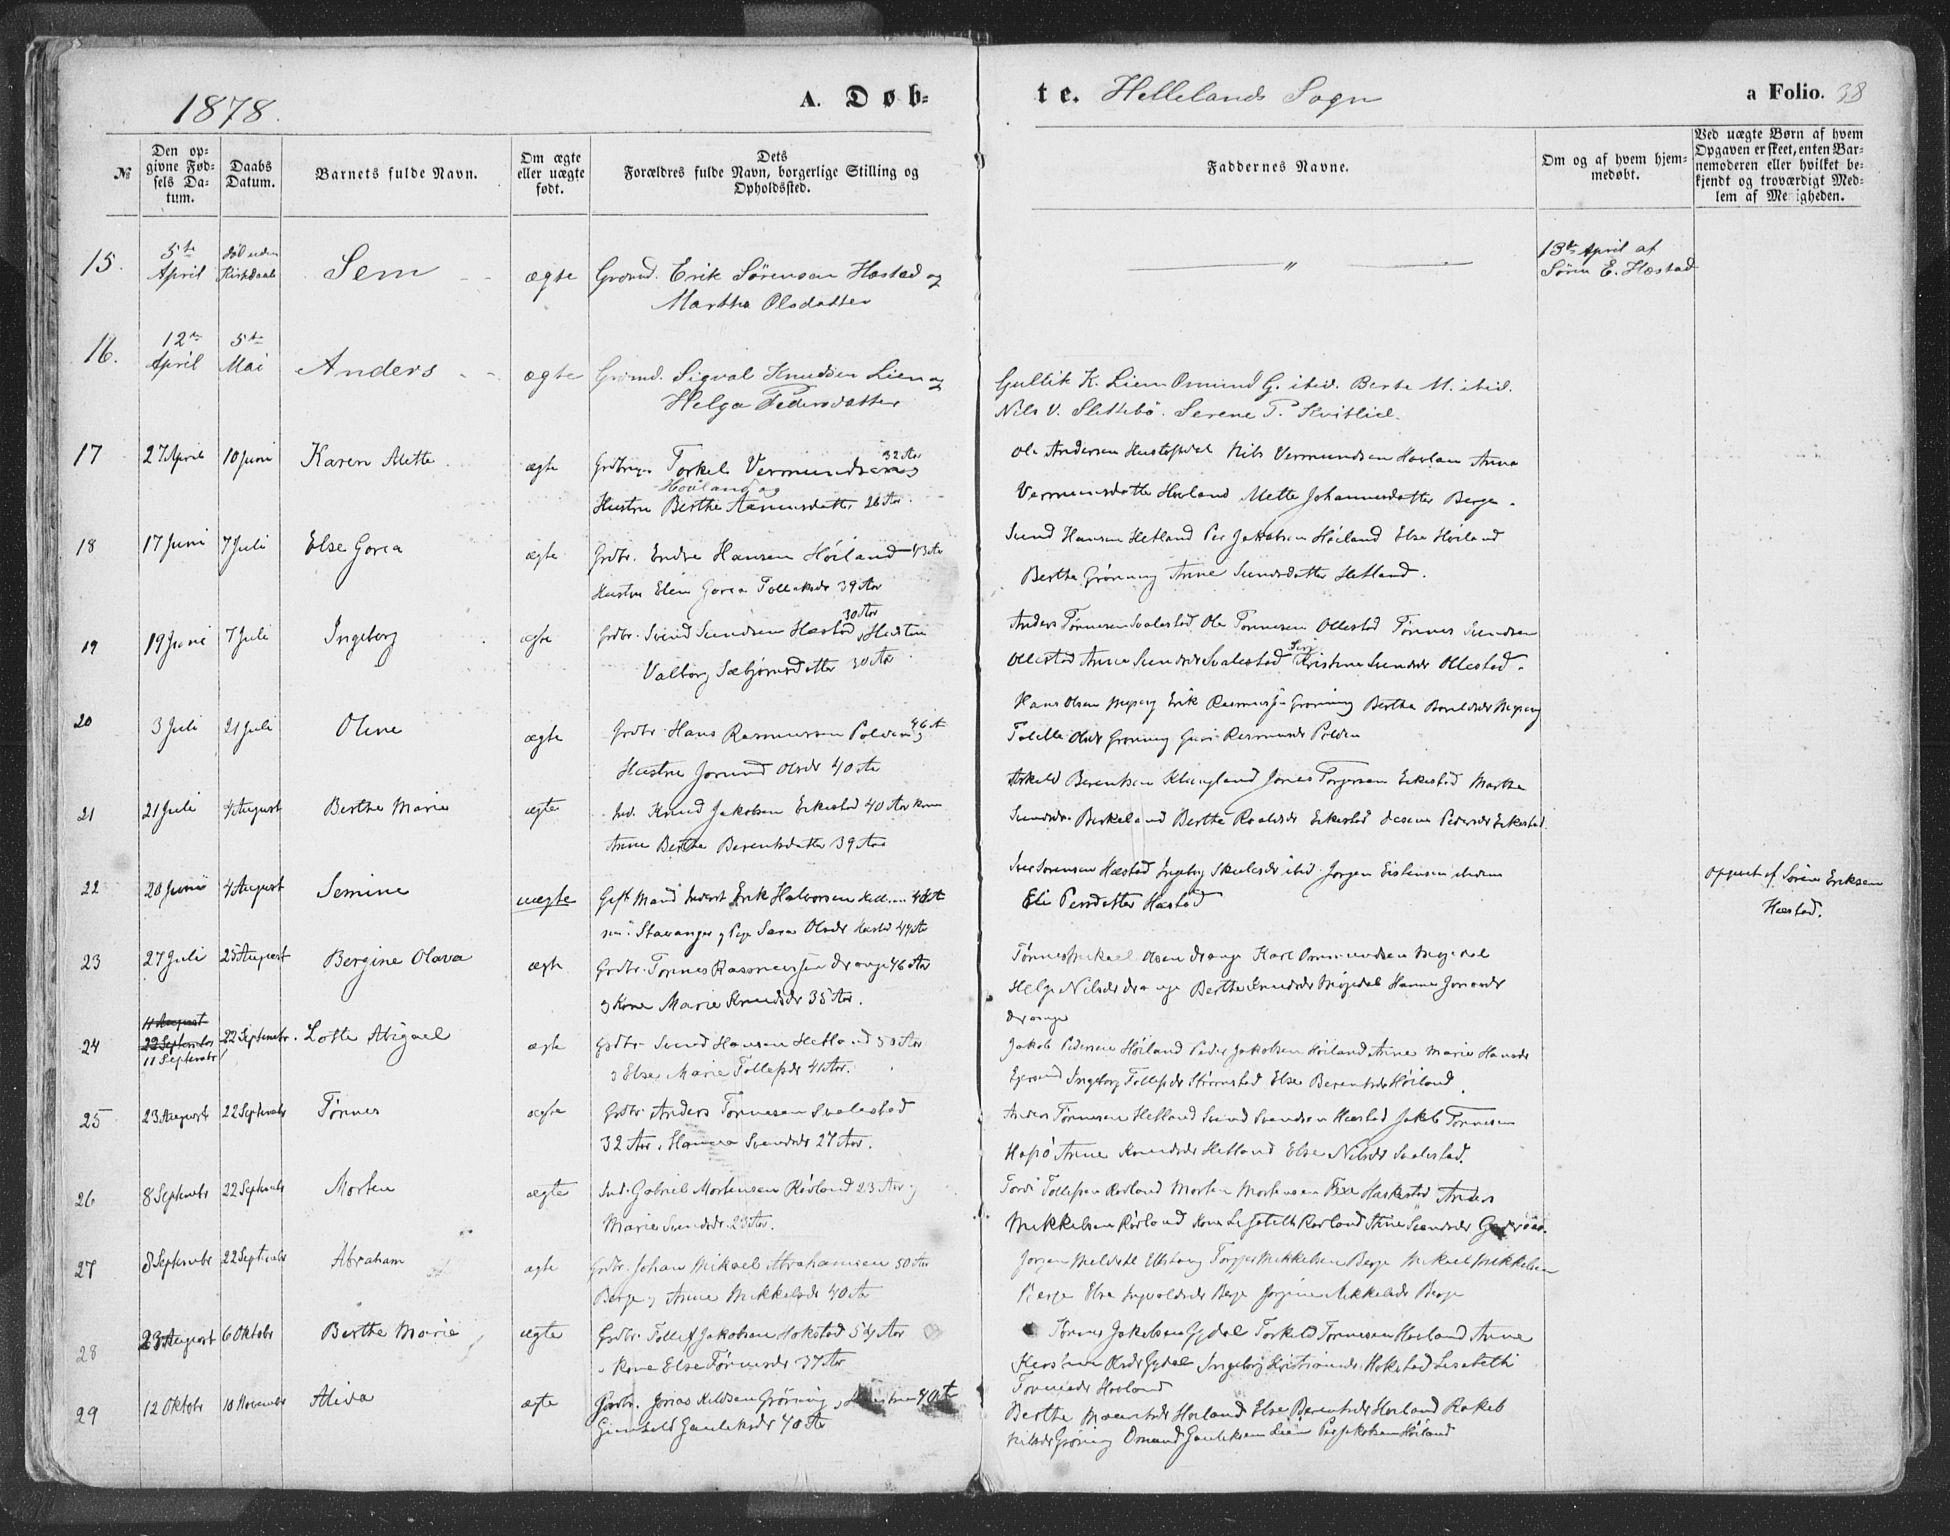 1878.
A. Døb-
te. Hellelands Sogn
a Folio. 38
№
Den opgivne Fødsels Datum.
Daabs Datum.
Barnets fulde Navn.
Om ægte eller uægte født.
Dets Forældres fulde Navn, borgerlige Stilling og Opholdssted.
Faddernes Navne.
Om og af hvem hjemmedøbt.
Ved uægte Børn af hvem Opgaven er skeet, enten Barnemoderen eller hvilket bekjendt og troværdigt Medlem af Menigheden.
15. 5te April død uden Kirkedaab Sem ægte Grdmd. Erik Sørensen Hæstad og
Martha Olsdatter
—— " ——
13de April af
Søren E. Hæstad
16. 12te April 5te Mai Anders ægte Grdmd. Sigval Knudsen Lien og
Helga Pedersdatter
Gullik K. Lien Omund G. ibid. Berte M. ibid.
Nils V. Slettebö. Serene P. Kvitlid.
17 27 April 10 Juni Karen Mette ægte Torkel Vermundsen 32 Aar
Hovland og
Hustru Berthe 26 Aar
Ole Andersen Nils Vermundsen Hovland Anna
Hovland Mette Johannesdatter Berge.
18 17 Juni 7 Juli Else Gorea ægte Grdbr. Endre Hansen Höiland 43 Aar
Hustru Elen Gorea Tolleksdr 39 Aar
Svend Hansen Hetland Per Jakobsen Höiland Else Höiland
Bertha Gröning Anne Svendsdatter Hetland.
19 19 Juni 7 Juli Ingeborg ægte Grdbr. Svend Svendsen Hæstad 30 Aar Hustru
Valborg Sæbjørnsdatter 30 Aar
Anders Tønnesen Svalestad Ole Tønnesen Ollestad Tønnes Svendsen
Ollestad Anne Svendsdr Svalestad Kristine Svendsdr Ollestad.
20 3 Juli 21 Juli Oline ægte Grdbr. Hans Rasmussen Polden 46 A
Hustru Jorund Olsdr 40 Aar
Hans Olsen Erik Rasmussen Gröning Bertha
Olsdr Gröning Guri Rasmusdr Polden
21 21 Juli 4 August Berthe Marie ægte Ind. Knud Jakobsen Eikestad 40 Aar kone
Anne Berthe Berentsdatter 39 Aar
Askild Berentsen Klungland Jonas Torgersen Eikestad Martha
Svendsdr. Birkeland Berthe Roaldsdr Eikestad Pedersdr Eikestad
22 20 Juni 4 August Semine uægte Gift Mand Erik Halvorsen 46 A
Stavanger og Pige Sara Olsdr Hæstad 44 Aar
Iver Sørensen Hæstad Ingeborg ibid. Jørgen Eistensen
Eli Persdatter Hæstad
opgivet af Sören Eriksen
Hæstad.
23 27 Juli 25 August Bergine Olava ægte Grdbr. Tønnes Rasmussen Drange 46 Aar
og Kone Marie Knudsdr 35 Aar.
Tønnes Mikael Olsen Drange Karl Ommundsen
Helge Nilsdr Drange Berthe Knudsdr Mögedal Hanne
Drange
24 11 August 22 September 11 September 22 September Lotte Abigael ægte Grdbr. Svend Hansen Hetland 50 Aar
og Else Marie Tollefsdr 41 Aar.
Jakob Pedersen Höiland Peder Jakobsen Höiland Anne Marie Hansdr
Egersund Ingeborg Tollefsdr Strømstad Else Berentsdr Höiland
25 23 August 22 Septembr Tønnes ægte Grdbr. Anders Tønnesen Svalestad
32 Aar. Hanna Svendsdr 27 Aar.
Anders Tønnesen Hetland Svend Svendsen Hæstad Jakob Tønnesen
Anne Knudsdr Hetland Else Nilsdr Svalestad.
26 8 Septembr 22 Septembr Morten ægte Ind. Gabriel Mortensen Rövland 23 Aar og
Marie Svendsdr 23 Aar.
Tollefsen Rövland Morten Mortensen Anders
Mikkelsen Rövland Kone Lisabeth Rövland Anne Svendsdr
27 8 Septembr 22 Septembr Abraham ægte Grdbr. Johan Mikael Abrahamsen 50 Aar
Berge og Anne Mikkelsdr 40 Aar
Jørgen Torger Mikkelsen Berge Mikael Mikkelsen
Berge Else Ingvaldsdr Berge Jørgine Mikkelsdr Berge
28 23 August 6 Oktobr Berthe Marie ægte Grdbr. Tollef Jakobsen Hokstad 54 Aar
Kone Else Tønnesdr 37 Aar
Tønnes Jakobsen Gydal Torkild Tønnesen Hovland Anne
Kirstine Olsdr Gydal Ingeborg Kristiansdr Hokstad Lisabeth
Tønnesdr Hovland
29 12 Oktobr 10 Novembr Alida ægte Grdbr. Jonas Kildsen Gröning, Hustru 40 A
Gunhild Gauleksdr 40 Aar
Berthe Hovland Else Berentsdr Hovland Rakel
Nilsdr Gröning Omund Gauleksen Lien Per Jakobsen Höiland